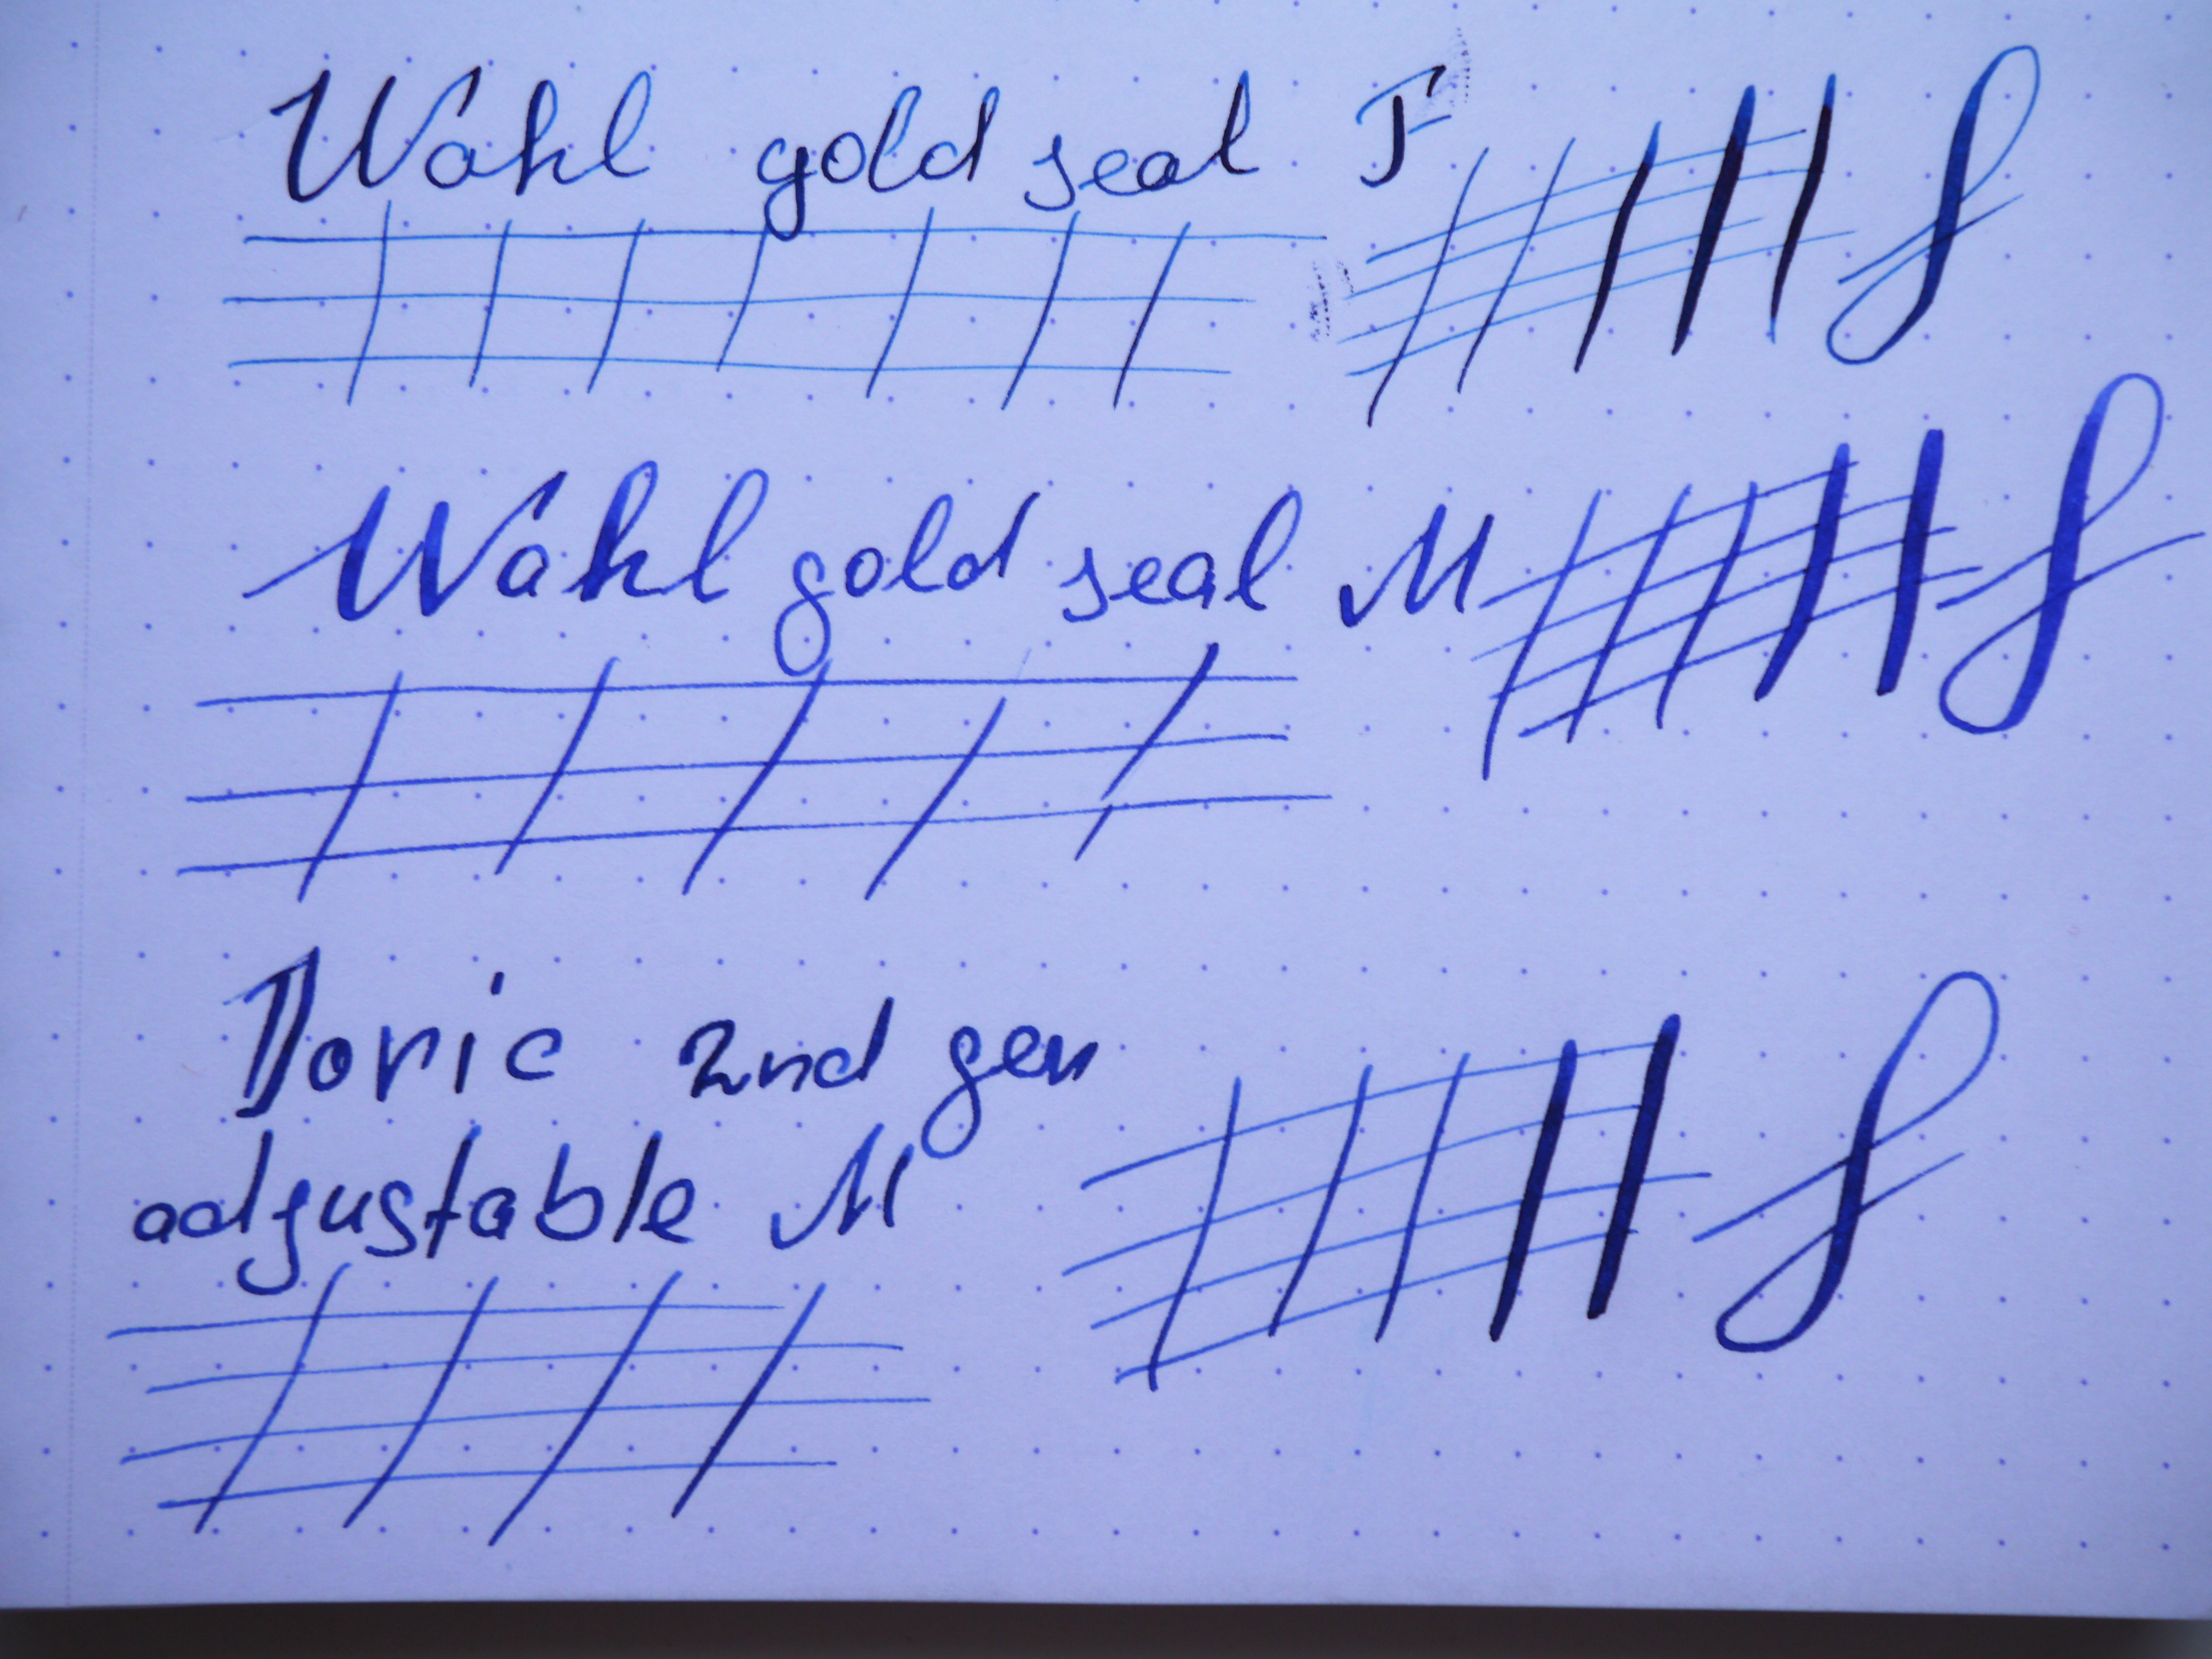 Wahl gold seal F
Wahl gold seal M
Doric 2nd gen
adjustable M